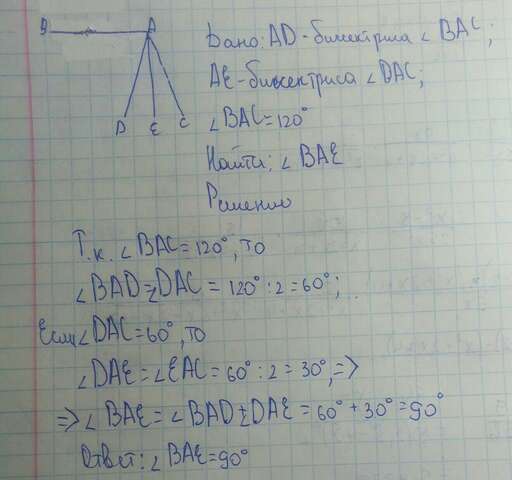 B A
D E C
Дано: AD - биссектриса ∠BAC;
AE - биссектриса ∠DAC;
∠BAC = 120°
Найти: ∠BAE
Решение
Т.к. ∠BAC = 120°, то
∠BAD = ∠DAC = 120° : 2 = 60°;
Если ∠DAC = 60°, то
∠DAE = ∠EAC = 60° : 2 = 30°, =>
=> ∠BAE = ∠BAD + ∠DAE = 60° + 30° = 90°
Ответ: ∠BAE = 90°